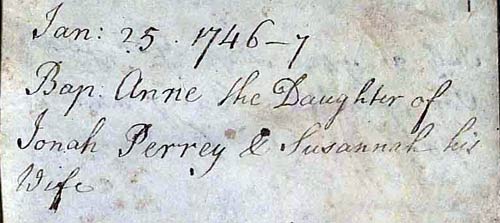 Jan: 25. 1746-7
Bap: Anne the Daughter of
Jonah Perrey & Susannah his
Wife